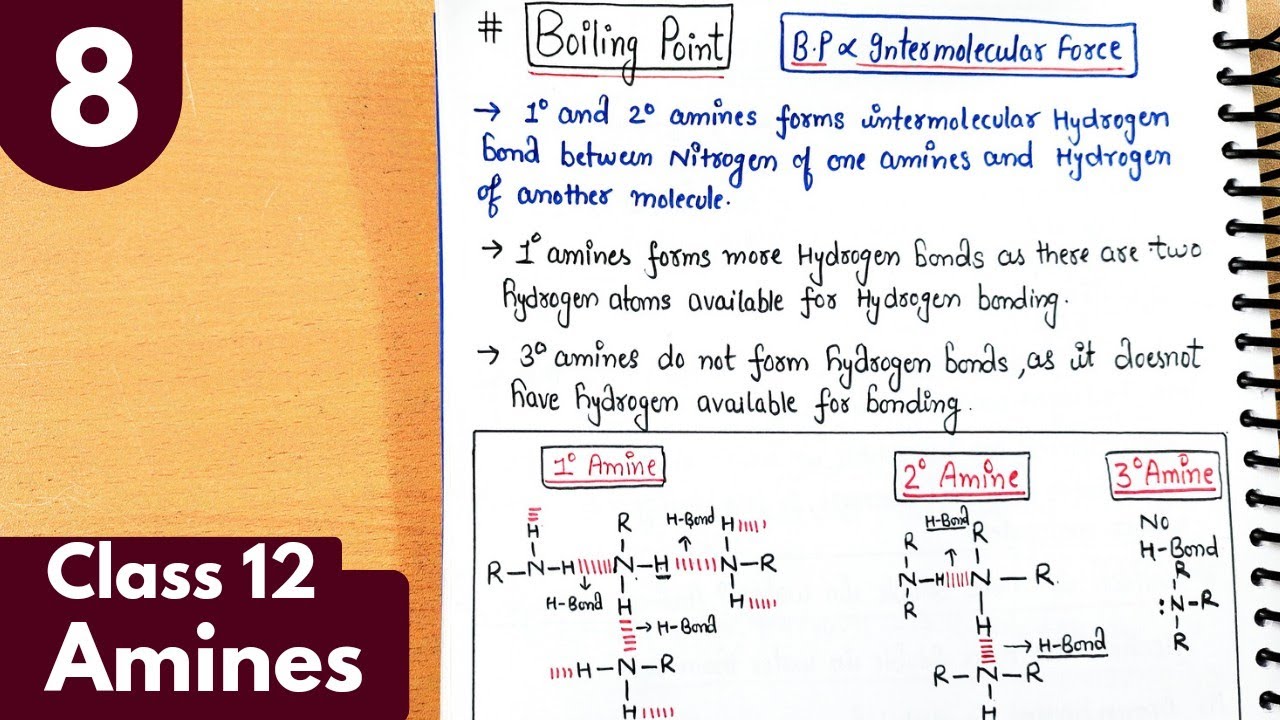 8
Class 12
Amines
# Boiling Point
B.P ∝ Intermolecular Force
→ 1° and 2° amines forms intermolecular Hydrogen
bond between Nitrogen of one amines and Hydrogen
of another molecule.
→ 1° amines forms more Hydrogen bonds as there are two
hydrogen atoms available for Hydrogen bonding.
→ 3° amines do not form hydrogen bonds, as it doesnot
have hydrogen available for bonding.
1° Amine
R H-Bond H
H
R–N–H N–H N–R
H-Bond H H
→ H-Bond
H–N–R
H
2° Amine
H-Bond
R R
N–H N – R
R H
→ H-Bond
R–N–R
H
3° Amine
No
H-Bond
R
:N–R
R